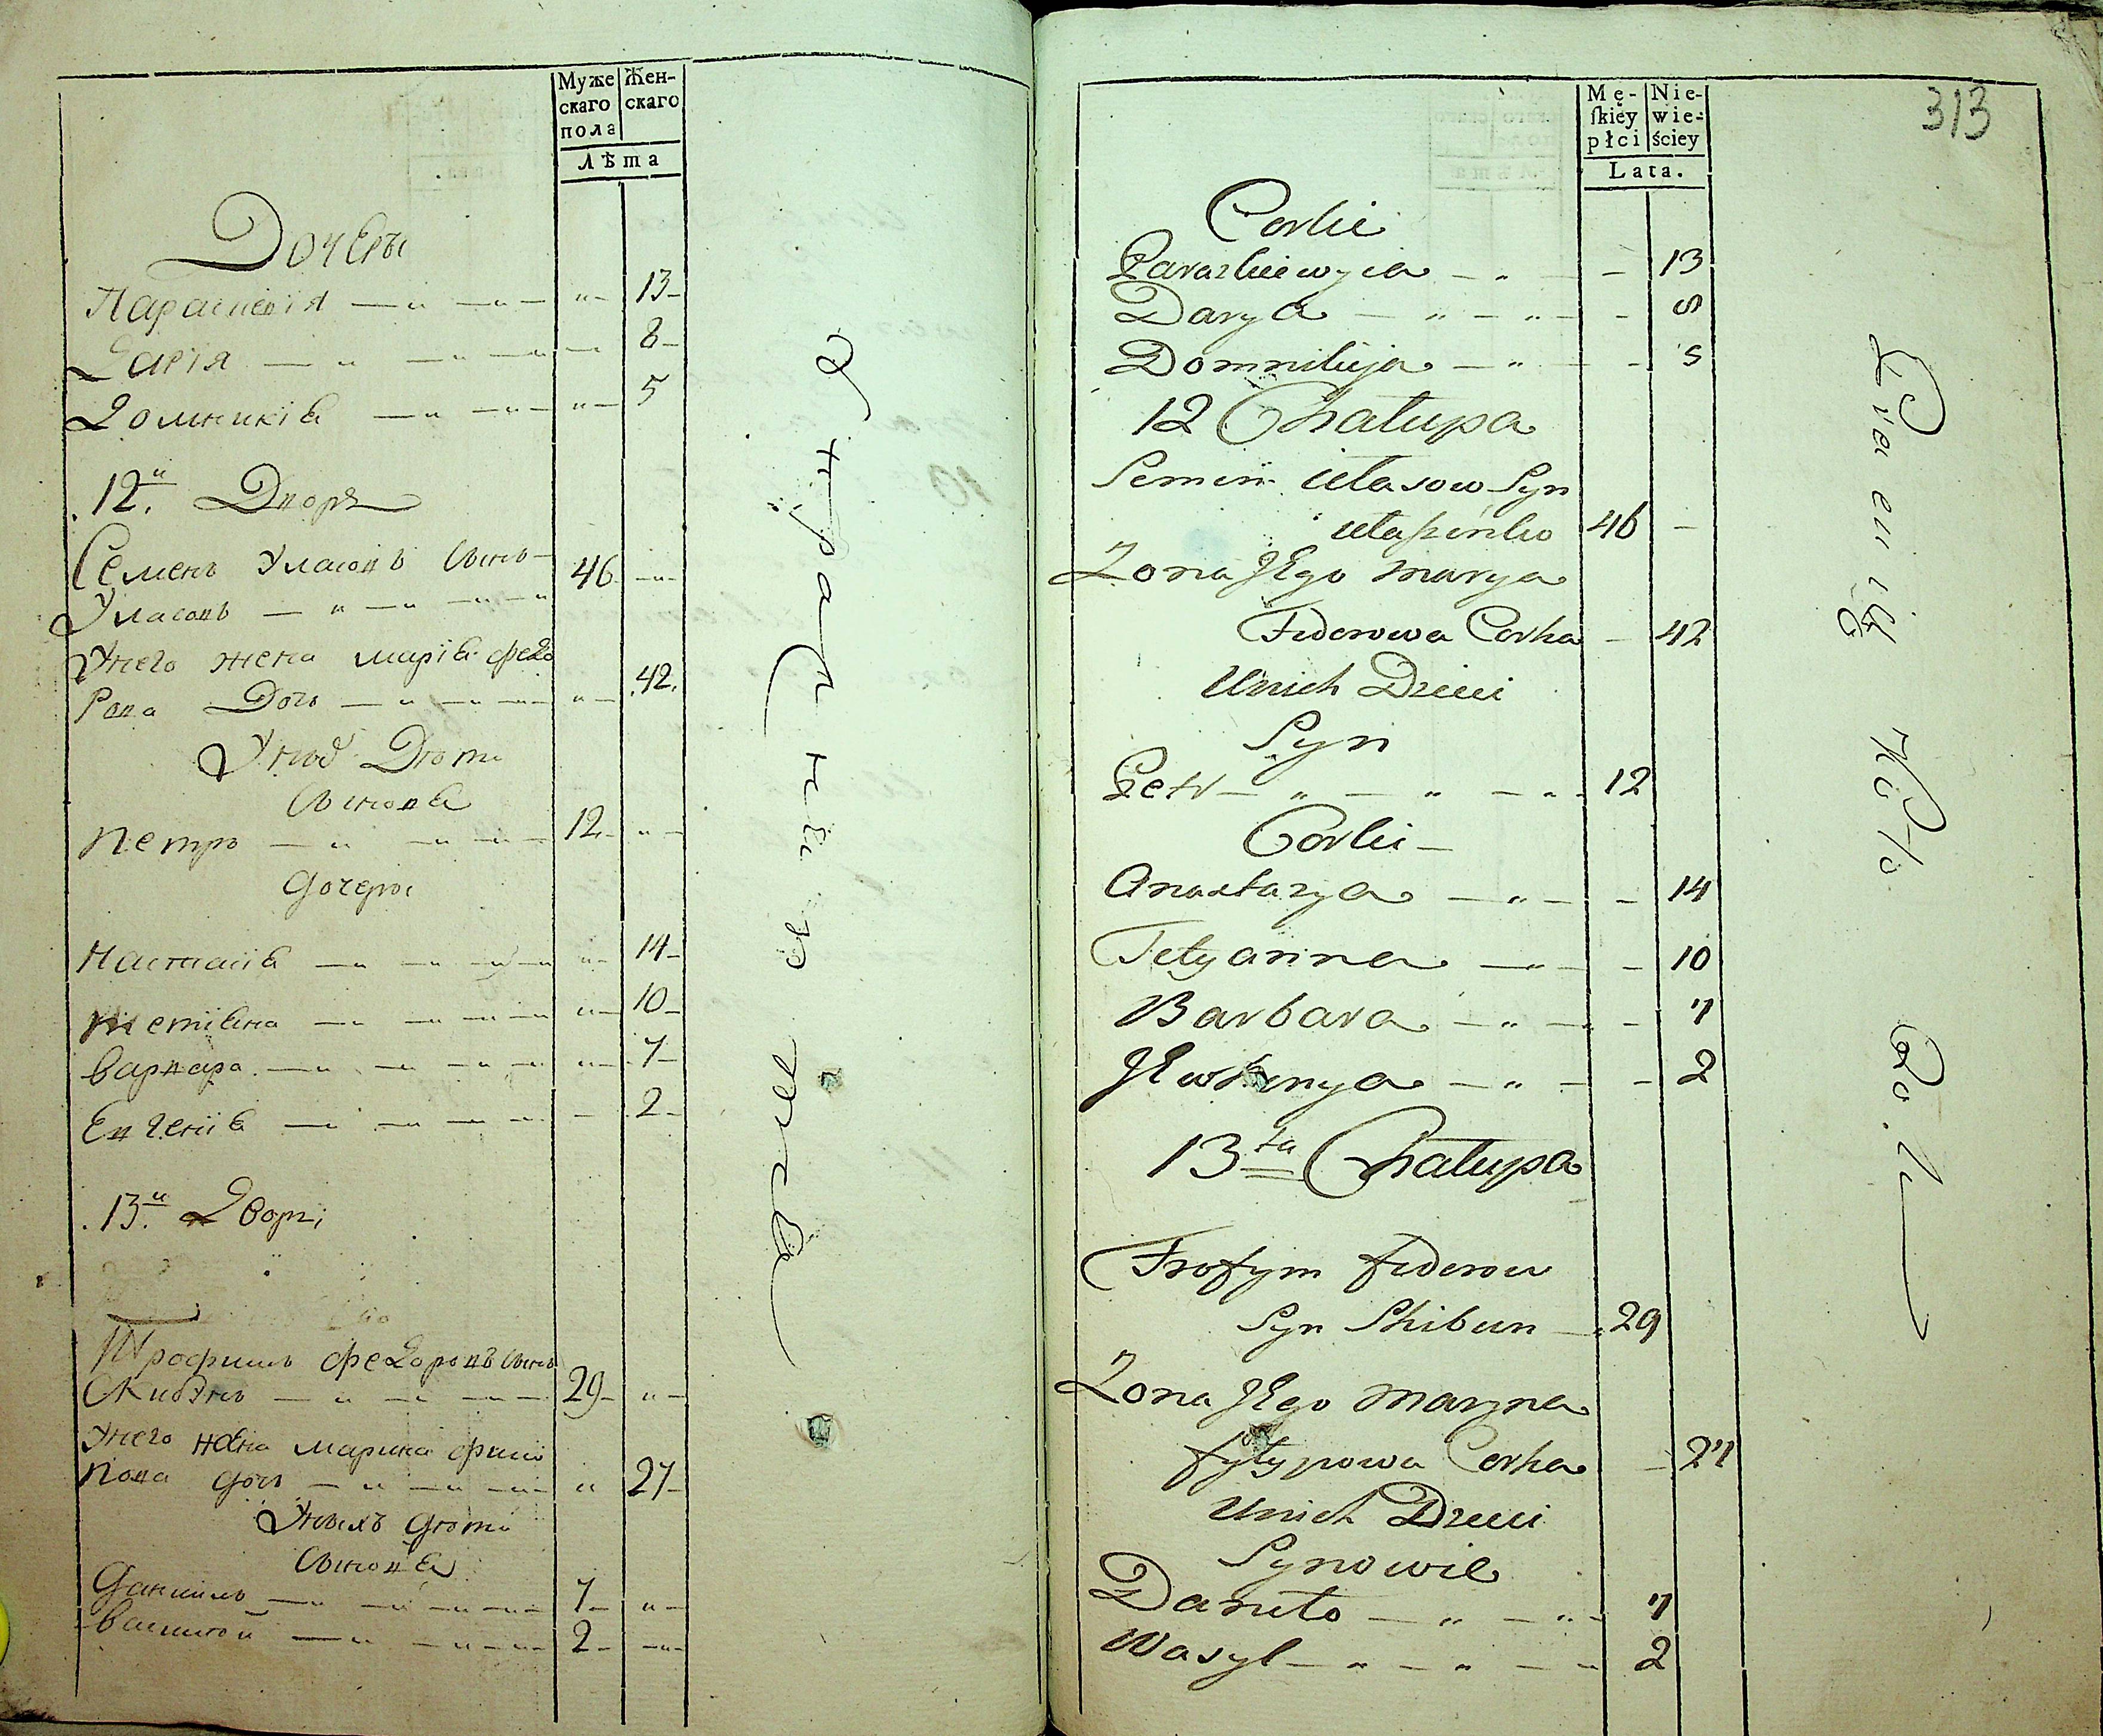 Муже
скаго
пола
Жен-
скаго
Лѣта
Дочеры
Параскевія 13
Дарія 8
Домникіа 5
12й Дворъ
Семенъ Уласовъ сынъ
Уласовъ 46
Унего жена Маріа Федо
рова Дочь 42
Уных Дѣти
Сынова
Петръ 12
Дочеры
Настасіа 14
Тетіана 10
Варвара 7
Евгеніа 2
13й Дворъ
Трофимъ Федоровъ сынъ
Скибунъ 29
Унего жена Марина Фили
пова дочь 27
Уныхъ дѣти
Сынова
Даниилъ 7
Василій 2
Mę-
ſkiéy
płci
Nie-
wie-
ściey
Lata.
313
Corki
Paraskiewyia 13
Darya 8
Domnikija 5
12 Chałupa
Semen Ułasow Syn
Ułaszenko 46
Zona JEgo Marya
Federowa Corka 42
Unich Dzieci
Syn
Petr 12
Corki
Anastazya 14
Tetyanna 10
Barbara 7
JEwhenya 2
13ta Chałupa
Trofym Federow
Syn Skibun 29
Zona JEgo Maryna
Fyłypowa Corka 27
Unich Dzieci
Synowie
Daniło 7
Wasyl 2